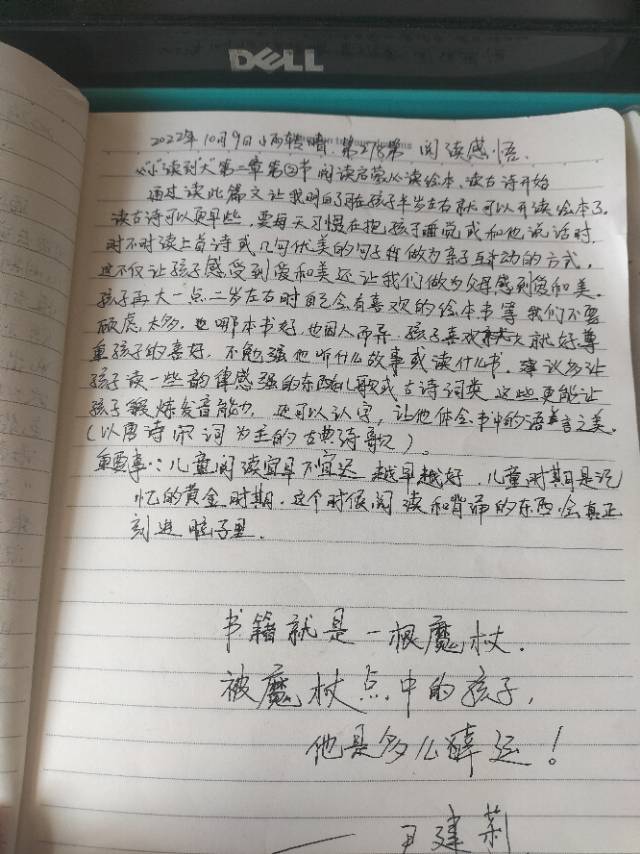 DELL
2022年10月9日 小雨转晴 第278篇 阅读感悟.
《"小"读到"大"》第二章第②节 阅读启蒙从读绘本、读古诗开始
通过读此篇文让我明白了孩子半岁左右就可以开读绘本了.
读古诗可以更早些，要每天习惯在抱孩子睡觉或和他说话时.
时不时读上首诗或几句优美的句子 做为亲子互动的方式，
这不仅让孩子感受到爱和美还让我们做为父母感到爱和美.
孩子再大一点二岁左右时自己会有喜欢的绘本书等 我们不要
顾虑太多. 哪本书好，也因人而异，孩子喜欢就好尊
重孩子的喜好. 不勉强他听什么故事或读什么书. 建议多让
孩子读一些韵律感强的东西如儿歌或古诗词类 这些更能让
孩子锻炼发音能力. 还可以认字，让他体会书中的语言之美.
(以唐诗宋词为主的古典诗歌).
重要事：儿童阅读宜早不宜迟 越早越好，儿童时期是记
忆的黄金时期. 这个时候阅读和背诵的东西会真正
刻进脑子里.
书籍就是一根魔杖.
被魔杖点中的孩子,
他是多么幸运！
—— 尹建莉